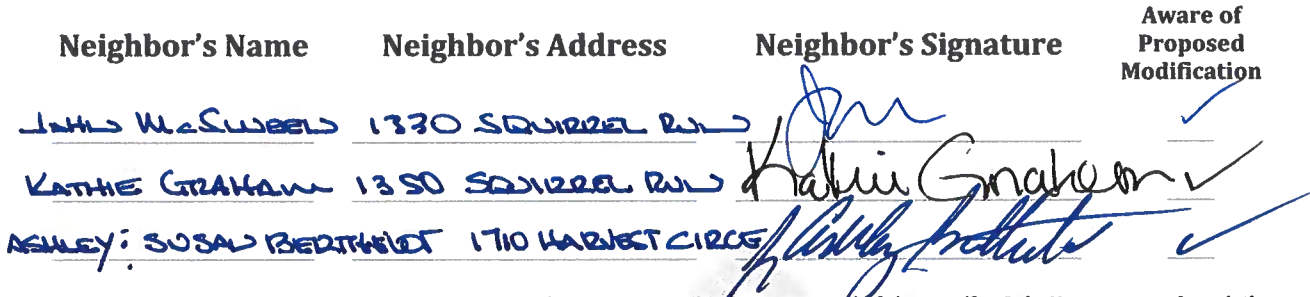 Neighbor's Name Neighbor's Address Neighbor's Signature Aware of
Proposed
Modification
JOHN McSWEEN 1330 SQUIRREL RUN
KATHIE GRAHAM 1350 SQUIRREL RUN Kathie Graham
ASHLEY : SUSAN 1710 HARVEST CIRCE